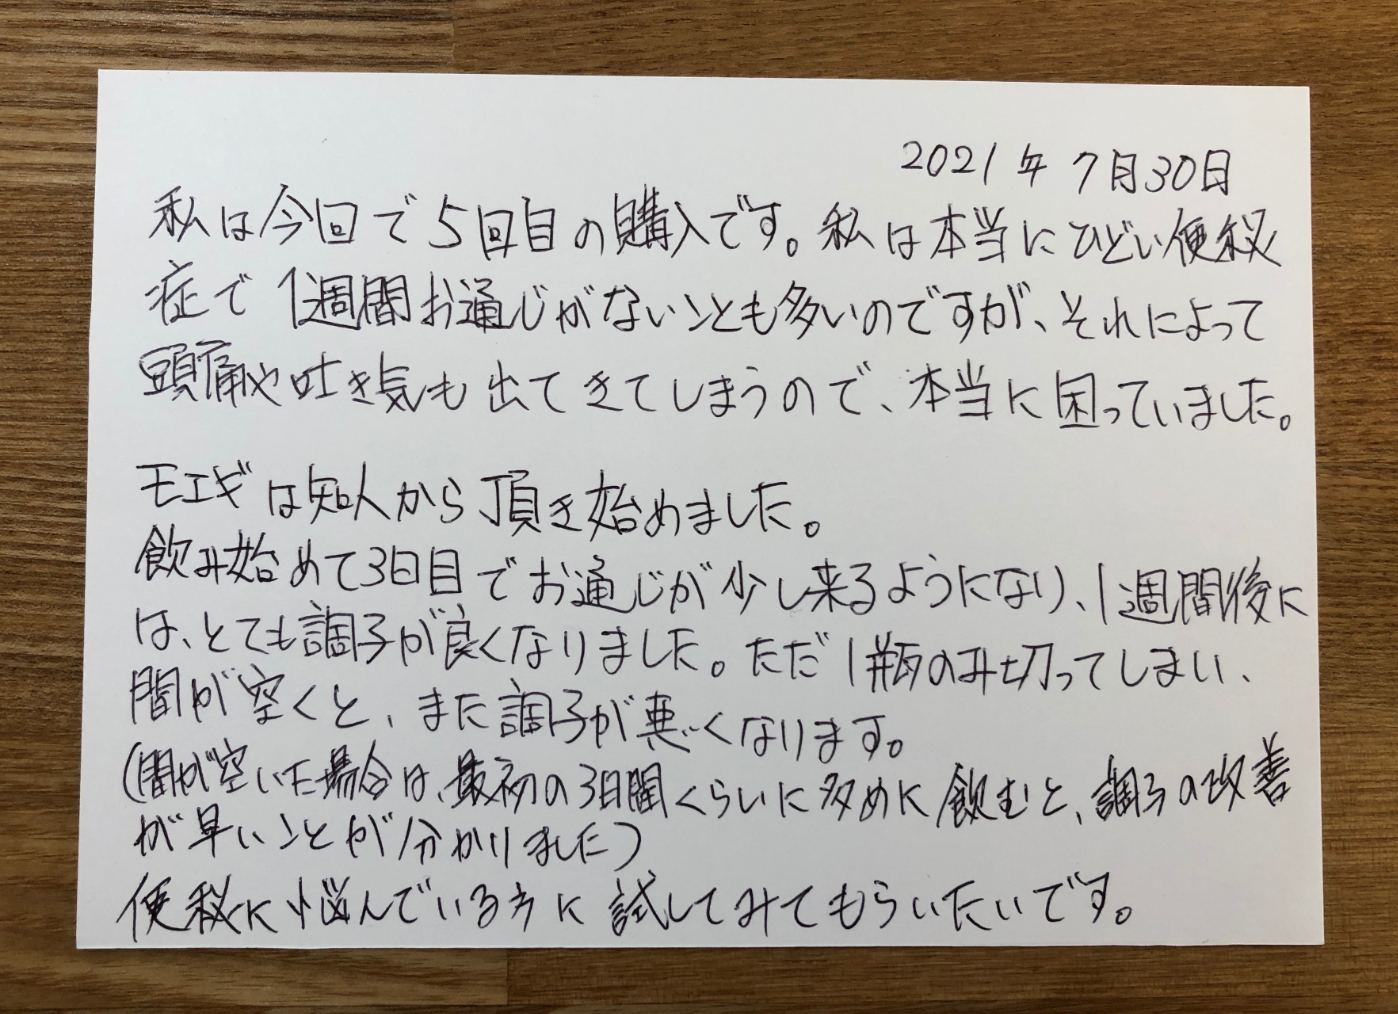 2021年 7月30日
私は今回で5回目の購入です。私は本当にひどい便秘
症で1週間お通じがないことも多いのですが、それによって
頭痛や吐き気も出てきてしまうので、本当に困っていました。
モエギは知人から頂き始めました。
飲み始めて3日目でお通じが少し来るようになり、1週間後に
は、とても調子が良くなりました。ただ1瓶のみ切ってしまい、
間が空くと、また調子が悪くなります。
(間が空いた場合は、最初の3日間くらいに多めに飲むと、調子の改善
が早いことが分かりました)
便秘に悩んでいる方に試してみてもらいたいです。